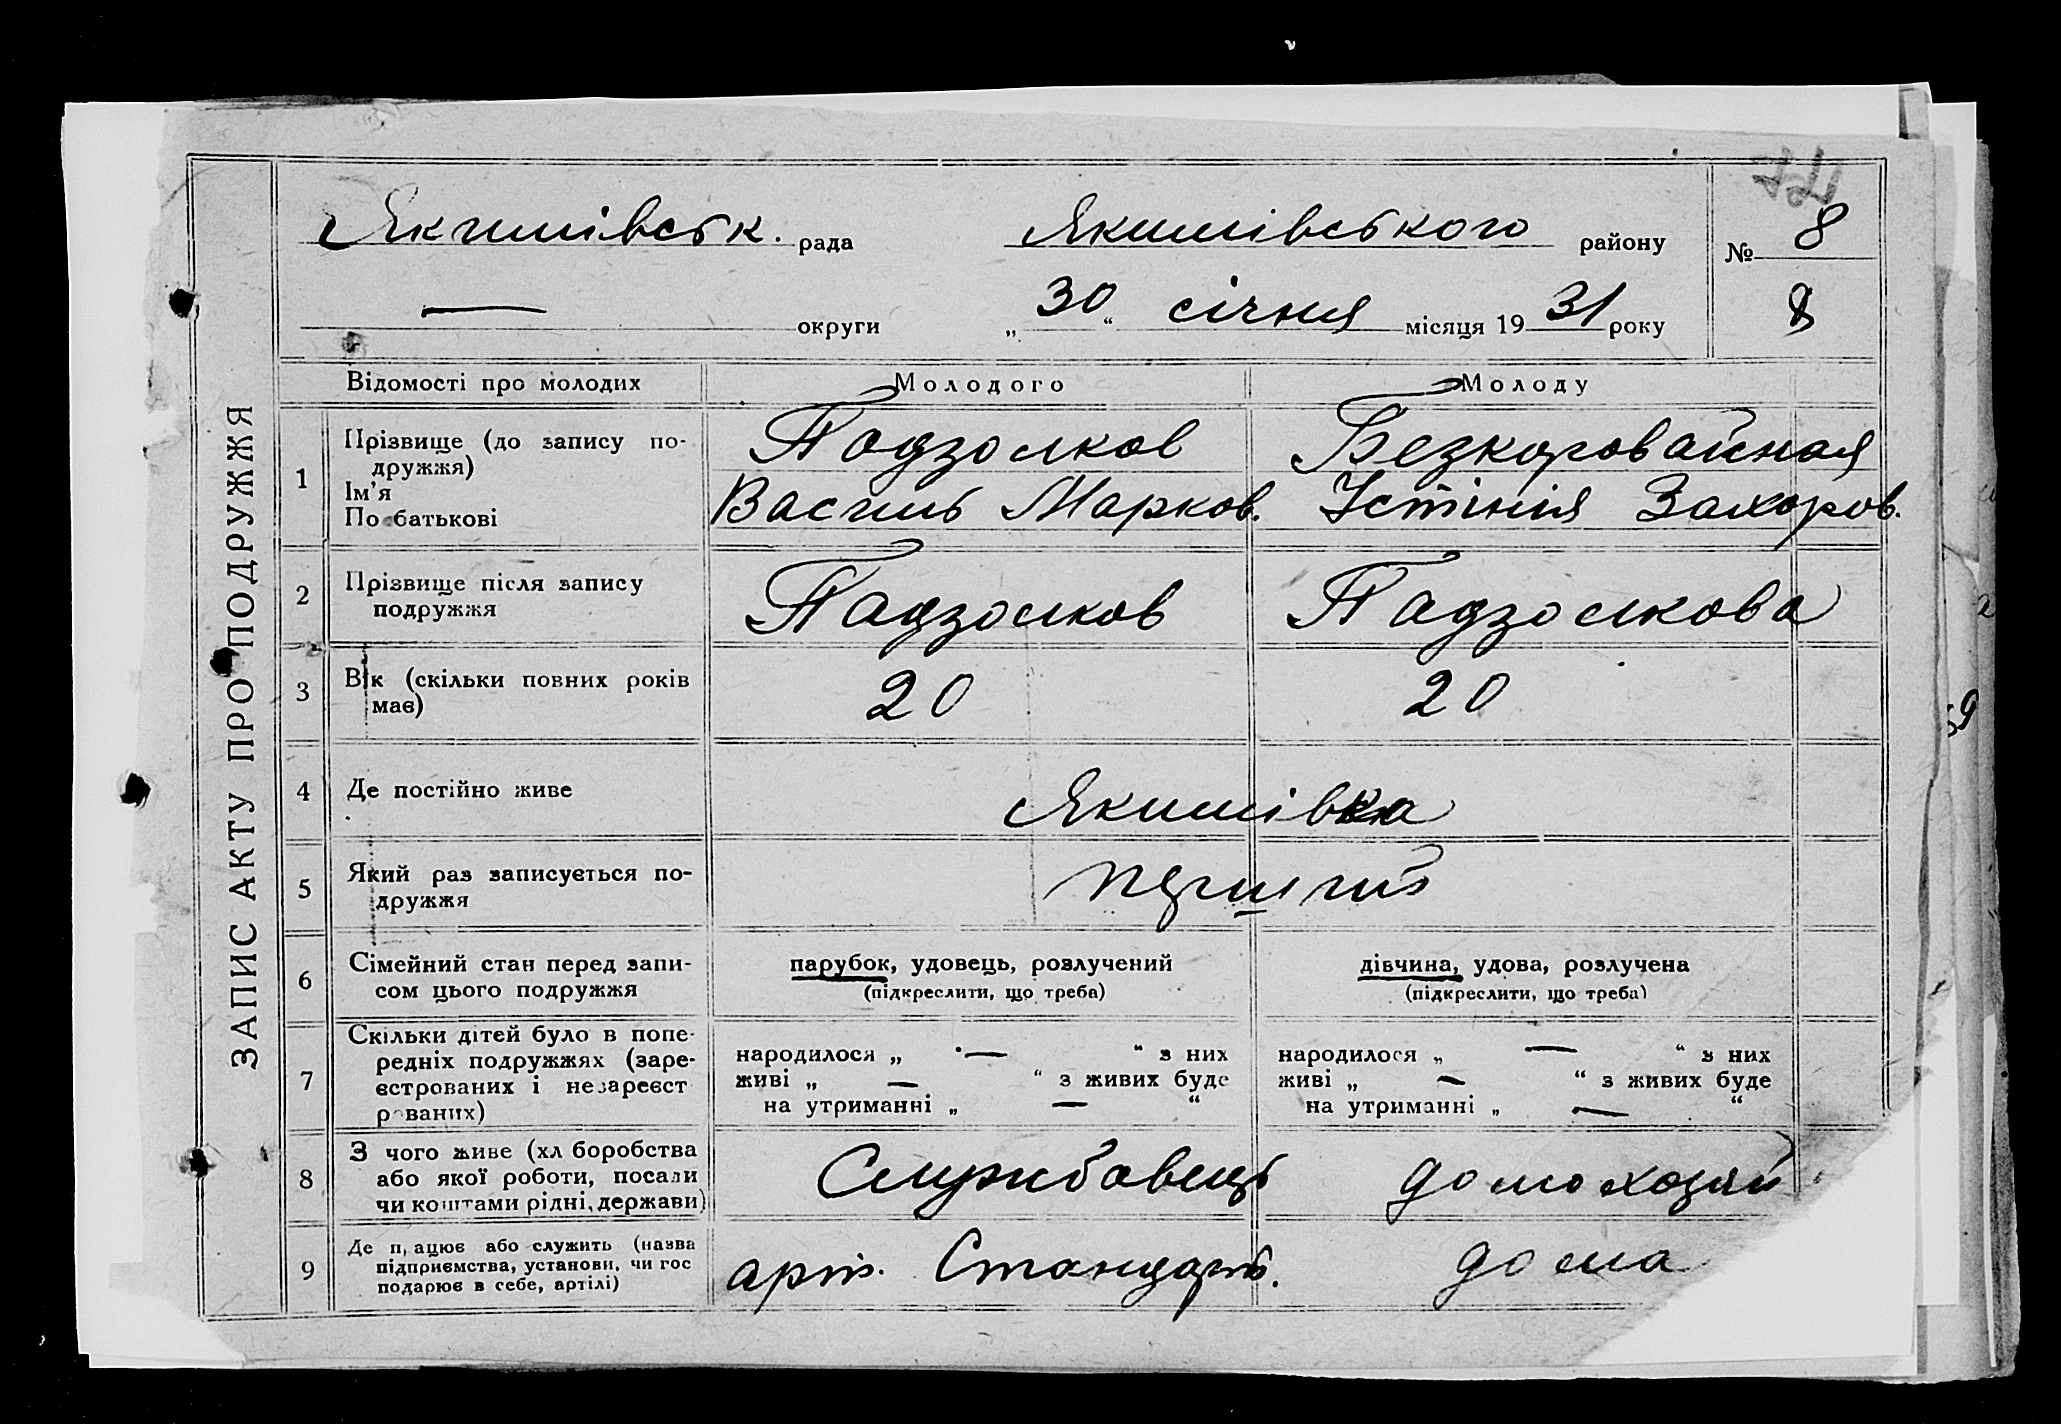 ЗАПИС АКТУ ПРО ПОДРУЖЖЯ
Якимівськ. рада Якимівського району № 8
— округи „ 30 “ січня місяця 19 31 року 8
Відомості про молодих Молодого Молоду
1 Прізвище (до запису по- Подзолков Безкоровайная
дружжя)
Ім’я Василь Марков. Устінія Захоров.
По батькові
2 Прізвище після запису Падзолков Падзолкова
подружжя
3 Вік (скільки повних років 20 20
має)
4 Де постійно живе Якимівка
5 Який раз записується по- перший
дружжя
6 Сімейний стан перед запи- парубок, удовець, розлучений дівчина, удова, розлучена
сом цього подружжя (підкреслити, що треба) (підкреслити, що треба)
7 Скільки дітей було в попе- народилося „ — “ з них народилося „ — “ з них
редніх подружжях (заре- живі „ — “ з живих буде живі „ — “ з живих буде
єстрованих і незареєст на утриманні „ — “ на утриманні „ — “
рованих)
8 З чого живе (хл боробства Службовець домохозяй
або якої роботи, посади
чи коштами рідні, держави)
9 Де працює або служить (назва арт. Стандарт. дома
підприємства, установи, чи гос
подарює в себе, артілі)